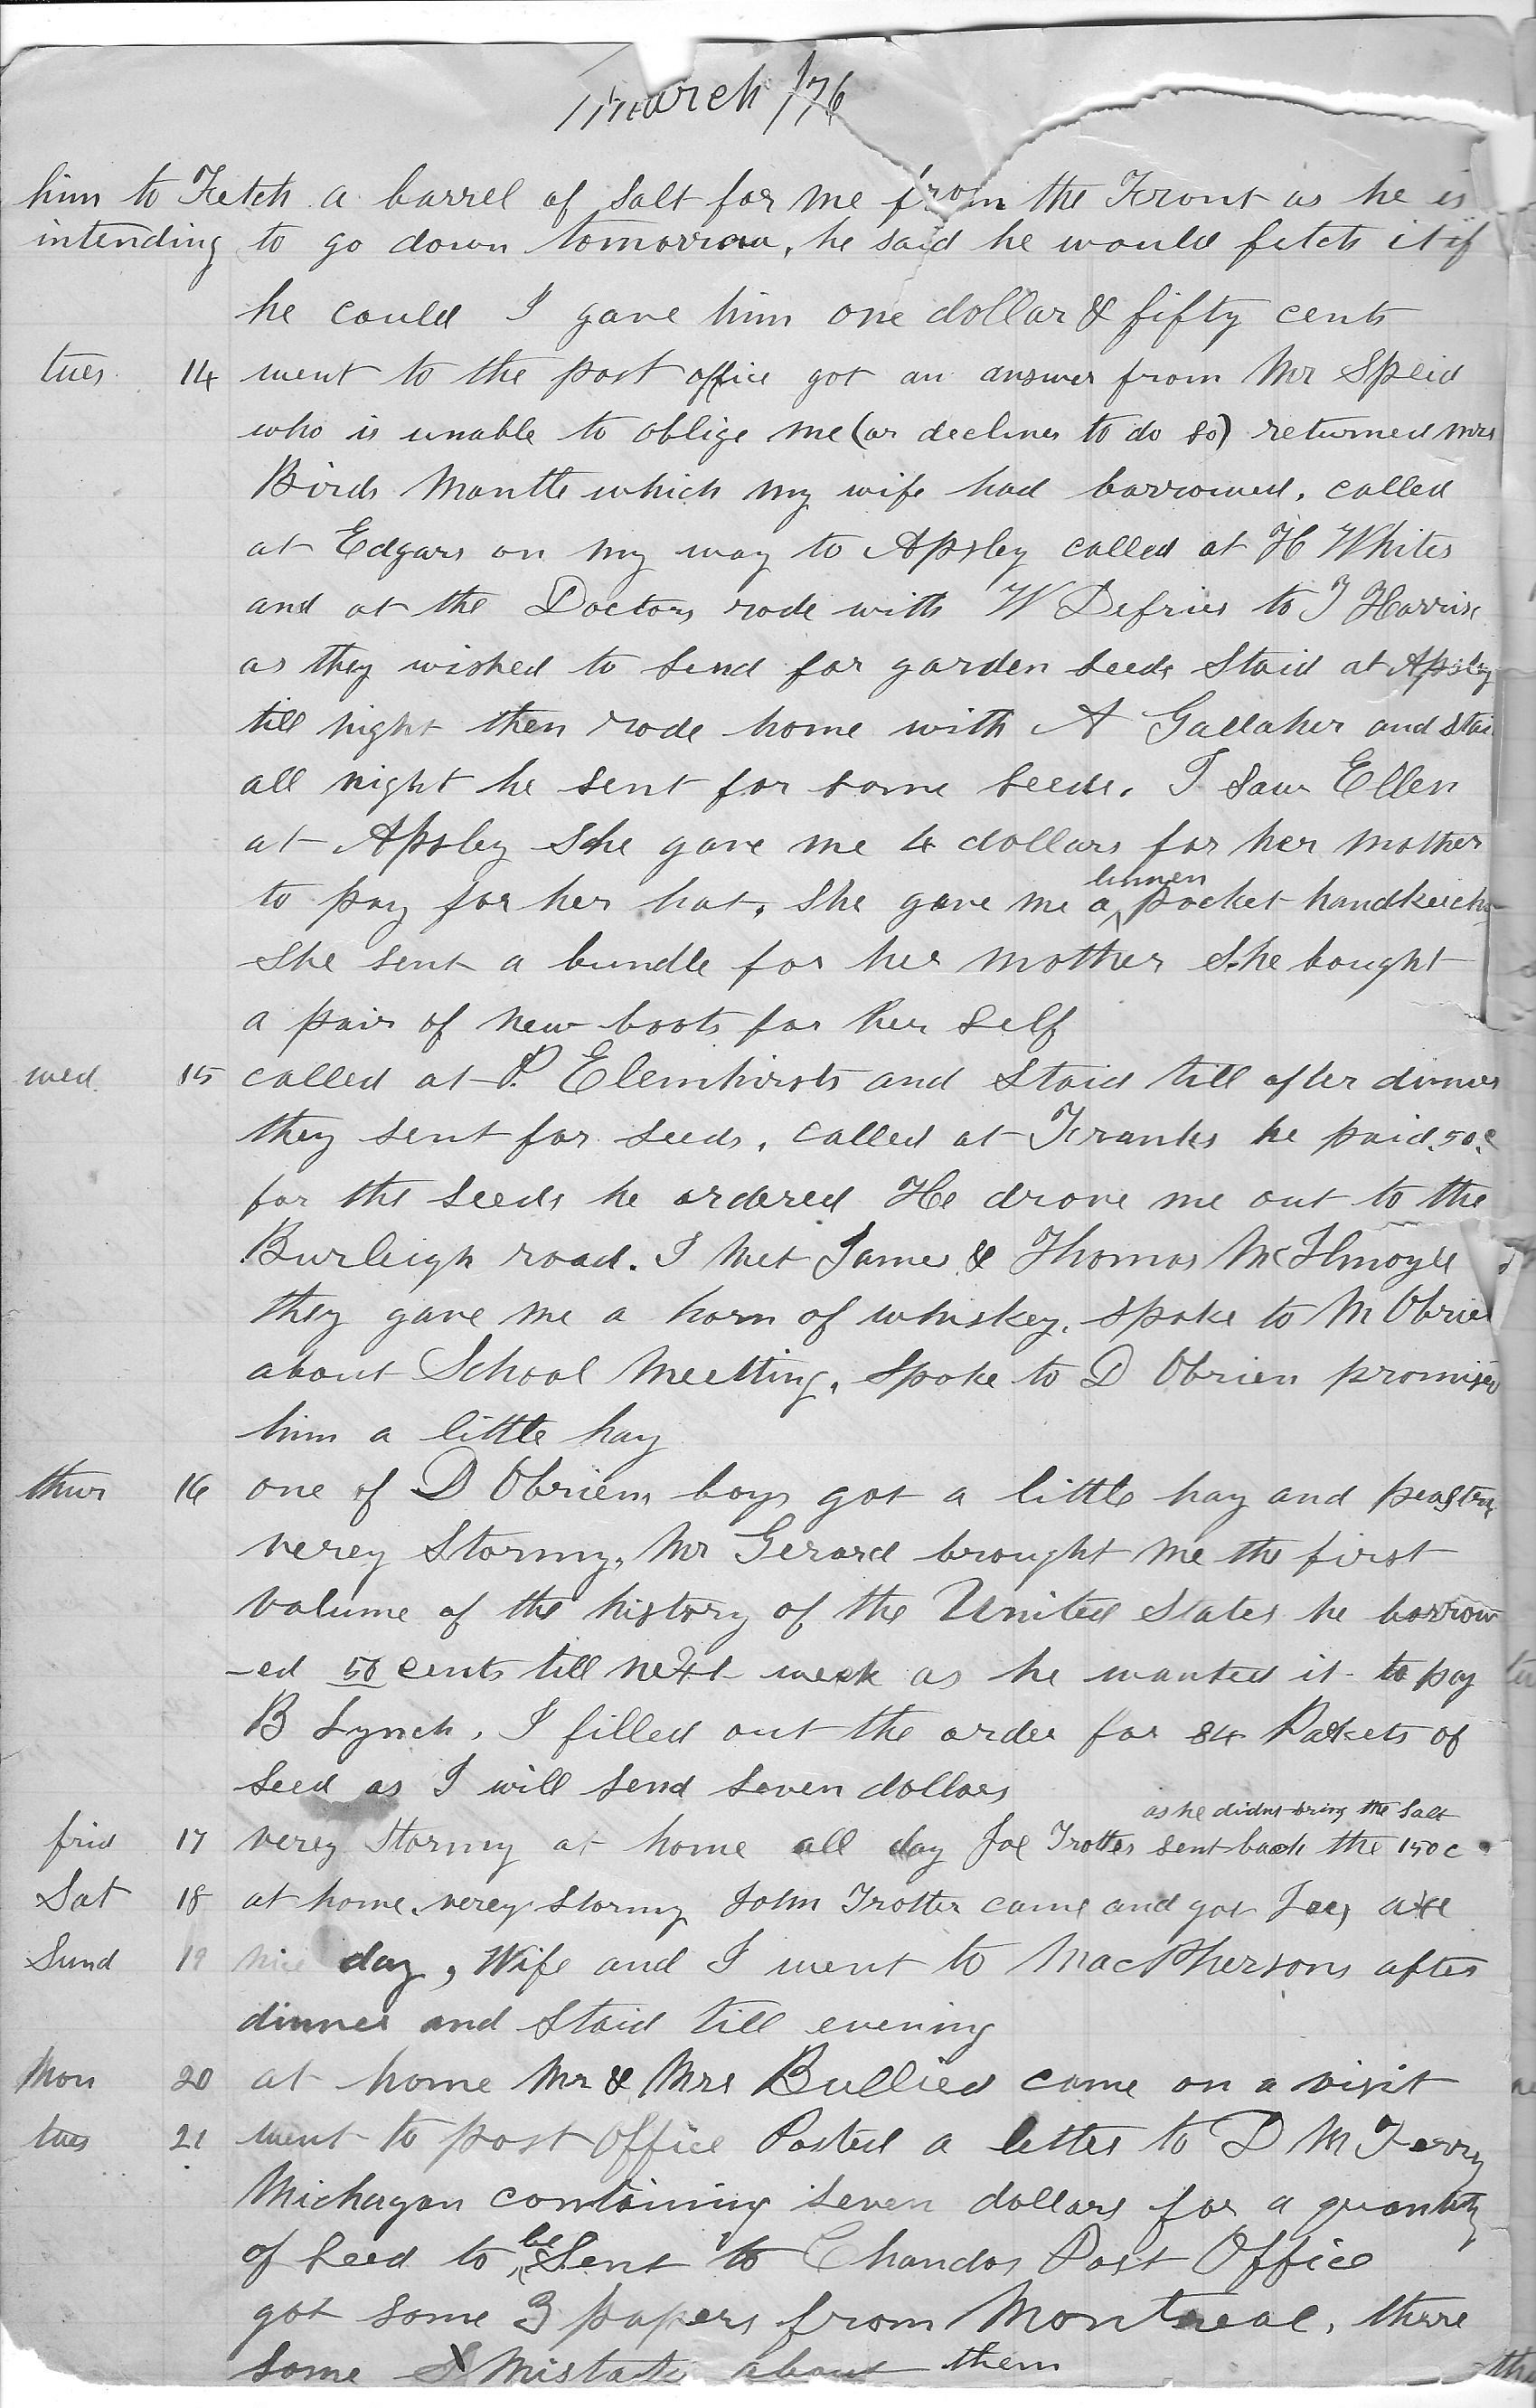 March /76
him to Fetch a barrel of Salt for me from the Front as he is
intending to go down tomorrow, he said he would fetch it if
he could I gave him one dollar & fifty cents
tues 14 went to the post office got an answer from Mr Speid
who is unable to oblige me (or declines to do so) returned Mrs
Birds Mantle which my wife had borrowed. called
at Edgars on my way to Apsley called at H Whites
and at the Doctors rode with W Defries to T Harris
as they wished to send for garden seeds Staid at Apsley
till night then rode home with A Gallaher and stai
all night he sent for some seeds. I saw Ellen
at Apsley She gave me 4 dollars for her mother
linnen
to pay for her hat. She gave me a pocket handkerch
She sent a bundle for her mother She bought
a pair of new boots for her self
wed 15 called at P. Elemhirsts and Staid till after dinner
they sent for seeds. called at Franks he paid .50.c
for the seeds he ordered He drove me out to the
Burleigh road. I met James & Thomas McIlmoyle
they gave me a horn of whiskey. spoke to M Obrien
about School Meeting. Spoke to D Obrien promised
him a little hay
thur 16 one of D Obriens boys got a little hay and
verey Stormy. Mr Gerard brought me the first
volume of the history of the United States he borrow
-ed 50 cents till next week as he wanted it to pay
B Lynch. I filled out the order for 84 Pakets of
Seed as I will send seven dollars
as he didnt bring the Salt
frid 17 verey Stormy at home all day Joe Trotter sent back the 150c
Sat 18 at home. verey Stormy John Trotter came and got axe
Sund 19 nice day, Wife and I went to MacPhersons after
dinner and Staid till evening
Mon 20 at home Mr & Mrs Bullied came on a visit
tues 21 went to post Office Posted a letter to D M Ferry
Michagan containing seven dollars for a quantity
be
of seed to Sent to Chandos Post Office
got some 3 papers from Montreal, there
some Mistake about them